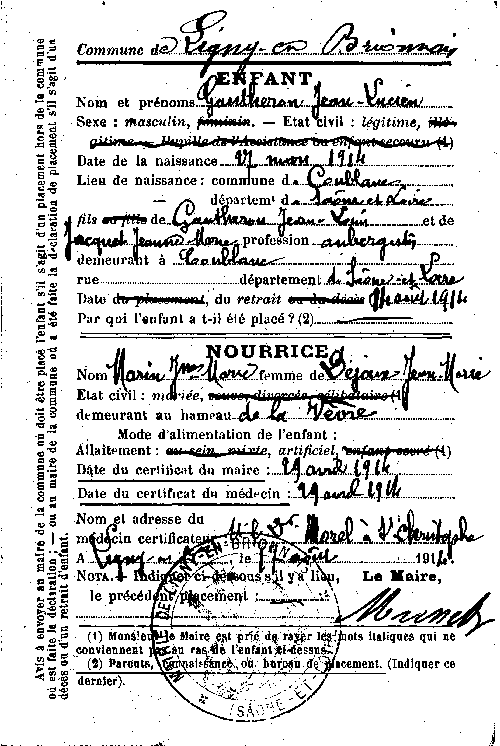 Commune de Ligny-en Brionnais
ENFANT
Nom et prénoms Gautheron Jean-Lucien
Sexe : masculin, féminin. — Etat civil : légitime, illé-
gitime. — Pupille de l'Assistance ou enfant secouru (1)
Date de la naissance 27 mars 1914
Lieu de naissance : commune de Coublanc
— départemt de Saône et Loire
fils ou fille de Gautheron Jean-Louis et de
Jacquet Jeanne Marie profession aubergiste
demeurant à Coublanc
rue département de Saône-et-Loire
Date du placement, du retrait ou du décès août 1914
Par qui l'enfant a t-il été placé ? (2)
NOURRICE
Nom Marin Jne Marie femme de Déjoux Jean Marie
Etat civil : mariée, veuve, divorcée, célibataire (1)
demeurant au hameau de la Vèvre
Mode d'alimentation de l'enfant :
Allaitement : au sein, mixte, artificiel, enfant sevré (1)
Date du certificat du maire : 29 avril 1914
Date du certificat du médecin : 29 avril 1914
Nom et adresse du
médecin certificateur : Morel à St Christophe
A Ligny le août 1914.
NOTA. — Indiquer ci-dessous s'il y a lieu, Le Maire,
le précédent placement :
(1) Monsieur le Maire est prié de rayer les mots italiques qui ne
conviennent pas au cas de l'enfant ci-dessus.
(2) Parents, connaissance, ou bureau de placement. (Indiquer ce
dernier).
MAIRIE DE LIGNY-EN-BRIONNAIS
(SAÔNE-ET-LOIRE)
Avis à envoyer au maire de la commune où doit être placé l'enfant s'il s'agit d'un placement hors de la commune
où est faite la déclaration ; — ou au maire de la commune où a été faite la déclaration de placement s'il s'agit d'un
décès ou d'un retrait d'enfant.